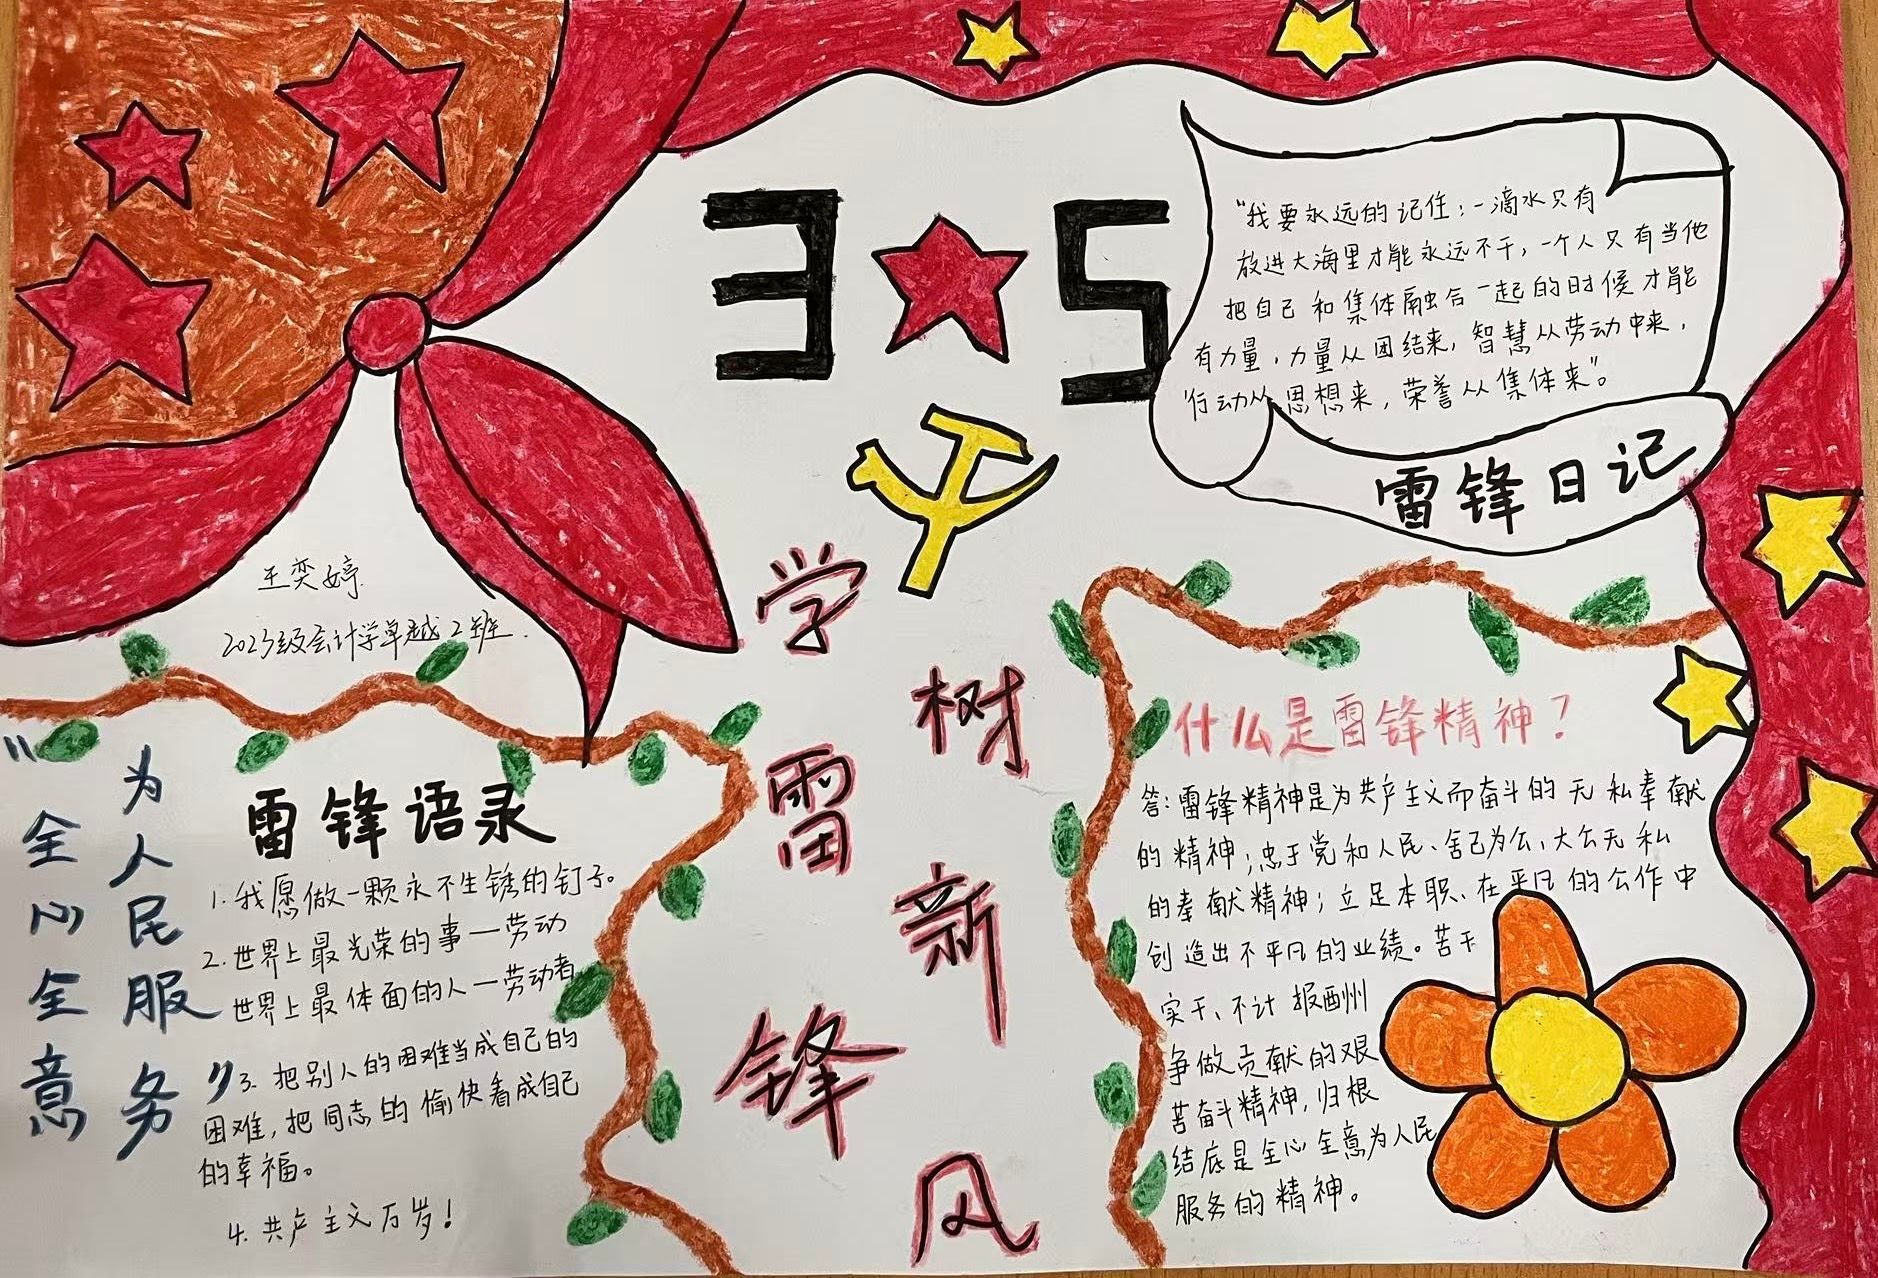 3 5
"我要永远的记住：一滴水只有
放进大海里才能永远不干，一个人只有当他
把自己和集体融合一起的时候才能
有力量，力量从团结来，智慧从劳动中来，
行动从思想来，荣誉从集体来"。
雷锋日记
王奕婷
2023级会计学卓越2班.
学雷锋
树新风
"全心全意
为人民服务"
雷锋语录
1.我愿做一颗永不生锈的钉子。
2.世界上最光荣的事—劳动
世界上最体面的人—劳动者
3.把别人的困难当成自己的
困难，把同志的愉快看成自己
的幸福。
4.共产主义万岁！
什么是雷锋精神？
答：雷锋精神是为共产主义而奋斗的无私奉献
的精神；忠于党和人民、舍己为公，大公无私
的奉献精神；立足本职、在平凡的公作中
创造出不平凡的业绩。苦干
实干、不计报酬州
争做贡献的艰
苦奋斗精神，归根
结底是全心全意为人民
服务的精神。